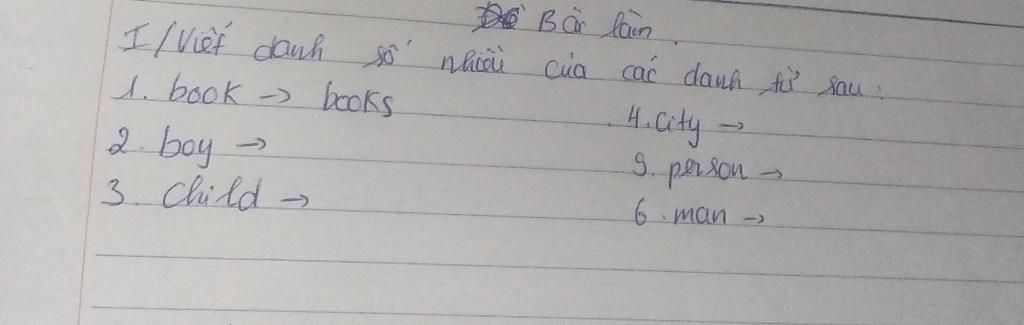 Bài làm.
I/Viết danh số nhiều của các danh từ sau:
1. book → books
2. boy →
3. Child →
4. City →
5. person →
6. man →